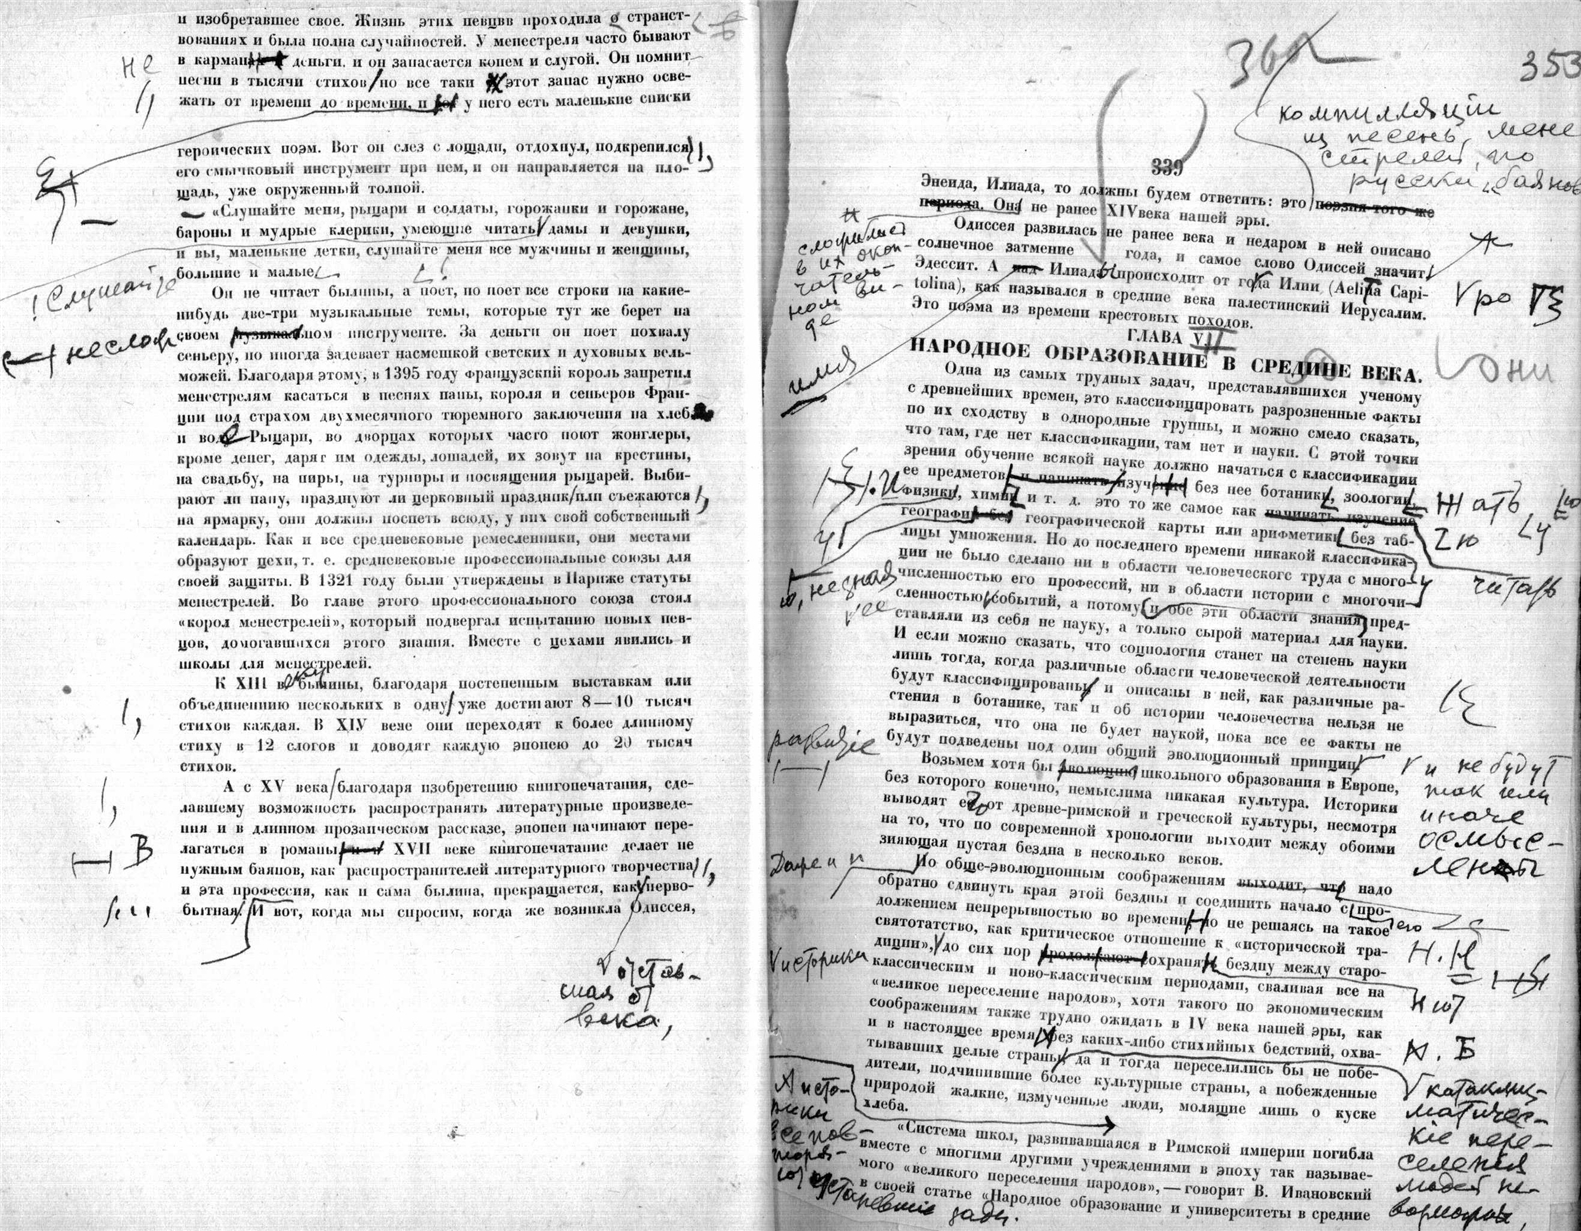 и изобретавшее свое. Жизнь этих певцвв проходила о странст-
вованиях и была полна случайностей. У менестреля часто бывают
в карман деньги. и он запасается конем и слугой. Он помнит
песни в тысячи стихов но все таки этот запас нужно осве-
жать от времени до времени, и у него есть маленькие списки
не
героических поэм. Вот он слез с лошади, отдохнул, подкрепился
его смычковый инструмент при нем, и он направляется на пло-
щадь, уже окруженный толпой.
— «Слушайте меня, рыцари и солдаты, горожанки и горожане,
бароны и мудрые клерики, умеющие читать дамы и девушки,
и вы, маленькие детки, слушайте меня все мужчины и женщины,
большие и малые
! Слушайте
Он не читает былины, а поет, но поет все строки на какие-
нибудь две-три музыкальные темы, которые тут же берет на
своем музыкальном инструменте. За деньги он поет похвалу
сеньеру, но иногда задевает насмешкой светских и духовных вель-
можей. Благодаря этому, в 1395 году французский король запретил
менестрелям касаться в песнях папы, короля и сеньеров Фран-
ции под страхом двухмесячного тюремного заключения на хлеб
и вод Рыцари, во дворцах которых часто поют жонглеры,
кроме денег, дарят им одежды, лошадей, их зовут на крестины,
на свадьбу, на пиры, на турниры и посвящения рыцарей. Выби-
рают ли папу, празднуют ли церковный праздник или съежаются
на ярмарку, они должны поспеть всюду, у них свой собственный
календарь. Как и все средневековые ремесленники, они местами
образуют цехи, т. е. средневековые профессиональные союзы для
своей защиты. В 1321 году были утверждены в Париже статуты
менестрелей. Во главе этого профессионального союза стоял
«корол менестрелей», который подвергал испытанию новых пев-
цов, домогавшихся этого знания. Вместе с цехами явились и
школы для менестрелей.
К XIII в былины, благодаря постепенным выставкам или
объединению нескольких в одну уже достигают 8—10 тысяч
стихов каждая. В XIV веке они переходят к более длинному
стиху в 12 слогов и доводят каждую эпопею до 20 тысяч
стихов.
А с XV века благодаря изобретению книгопечатания, сде-
лавшему возможность распространять литературные произведе-
ния и в длинном прозаическом рассказе, эпопеи начинают пере-
лагаться в романы XVII веке книгопечатание делает не
нужным баянов, как распространителей литературного творчества
и эта профессия, как и сама былина, прекращается, как перво-
бытная. И вот, когда мы спросим, когда же возникла Одиссея,
В
века,
353
компилляции
из песень мене
стрелей, по
русски „баянов
339
Энеида, Илиада, то должны будем ответить: это поэзия того же
периода. Она не ранее XIV века нашей эры.
Одиссея развилась не ранее века и недаром в ней описано
солнечное затмение года, и самое слово Одиссей значит
Эдессит. А над Илиада происходит от года Илии (Aelina Capi-
tolina), как назывался в средние века палестинский Иерусалим.
Это поэма из времени крестовых походов.
в их окон-
чатель-
ном ви-
де
имя
ГЛАВА VII
НАРОДНОЕ ОБРАЗОВАНИЕ В СРЕДНИЕ ВЕКА.
Одна из самых трудных задач, представлявшихся ученому
с древнейших времен, это классифицировать разрозненные факты
по их сходству в однородные группы, и можно смело сказать,
что там, где нет классификации, там нет и науки. С этой точки
зрения обучение всякой науке должно начаться с классификации
ее предметов и начинать изучение без нее ботаники, зоологии,
физики, химии и т. д. это то же самое как начинать изучение
географии без географической карты или арифметики без таб-
лицы умножения. Но до последнего времени никакой классифика-
ции не было сделано ни в области человеческого труда с много-
численностью его профессий, ни в области истории с многочи-
сленностью событий, а потому и обе эти области знания пред-
ставляли из себя не науку, а только сырой материал для науки.
И если можно сказать, что социология станет на степень науки
лишь тогда, когда различные области человеческой деятельности
будут классифицированы и описаны в ней, как различные ра-
стения в ботанике, так и об истории человечества нельзя не
выразиться, что она не будет наукой, пока все ее факты не
будут подведены под один общий эволюционный принцип
они
развитие
и не будут
так или
иначе
осмыс-
лены
Возьмем хотя бы эволюцию школьного образования в Европе,
без которого конечно, немыслима никакая культура. Историки
выводят ее от древне-римской и греческой культуры, несмотря
на то, что по современной хронологии выходит между обоими
зияющая пустая бездна в несколько веков.
По обще-эволюционным соображениям выходит, что надо
обратно сдвинуть края этой бездны и соединить начало с про-
должением непрерывностью во времени, но не решаясь на такое
святотатство, как критическое отношение к «исторической тра-
диции», до сих пор продолжают сохранять бездну между старо-
классическим и ново-классическим периодами, сваливая все на
«великое переселение народов», хотя такого по экономическим
соображениям также трудно ожидать в IV века нашей эры, как
и в настоящее время без каких-либо стихийных бедствий, охва-
тывавших целые страны, да и тогда переселились бы не побе-
дители, подчинившие более культурные страны, а побежденные
природой жалкие, измученные люди, молящие лишь о куске
хлеба.
историки
катаклиз-
матичес-
кие пере-
селения
«Система школ, развивавшаяся в Римской империи погибла
вместе с многими другими учреждениями в эпоху так называе-
мого «великого переселения народов»,— говорит В. Ивановский
в своей статье «Народное образование и университеты в средние